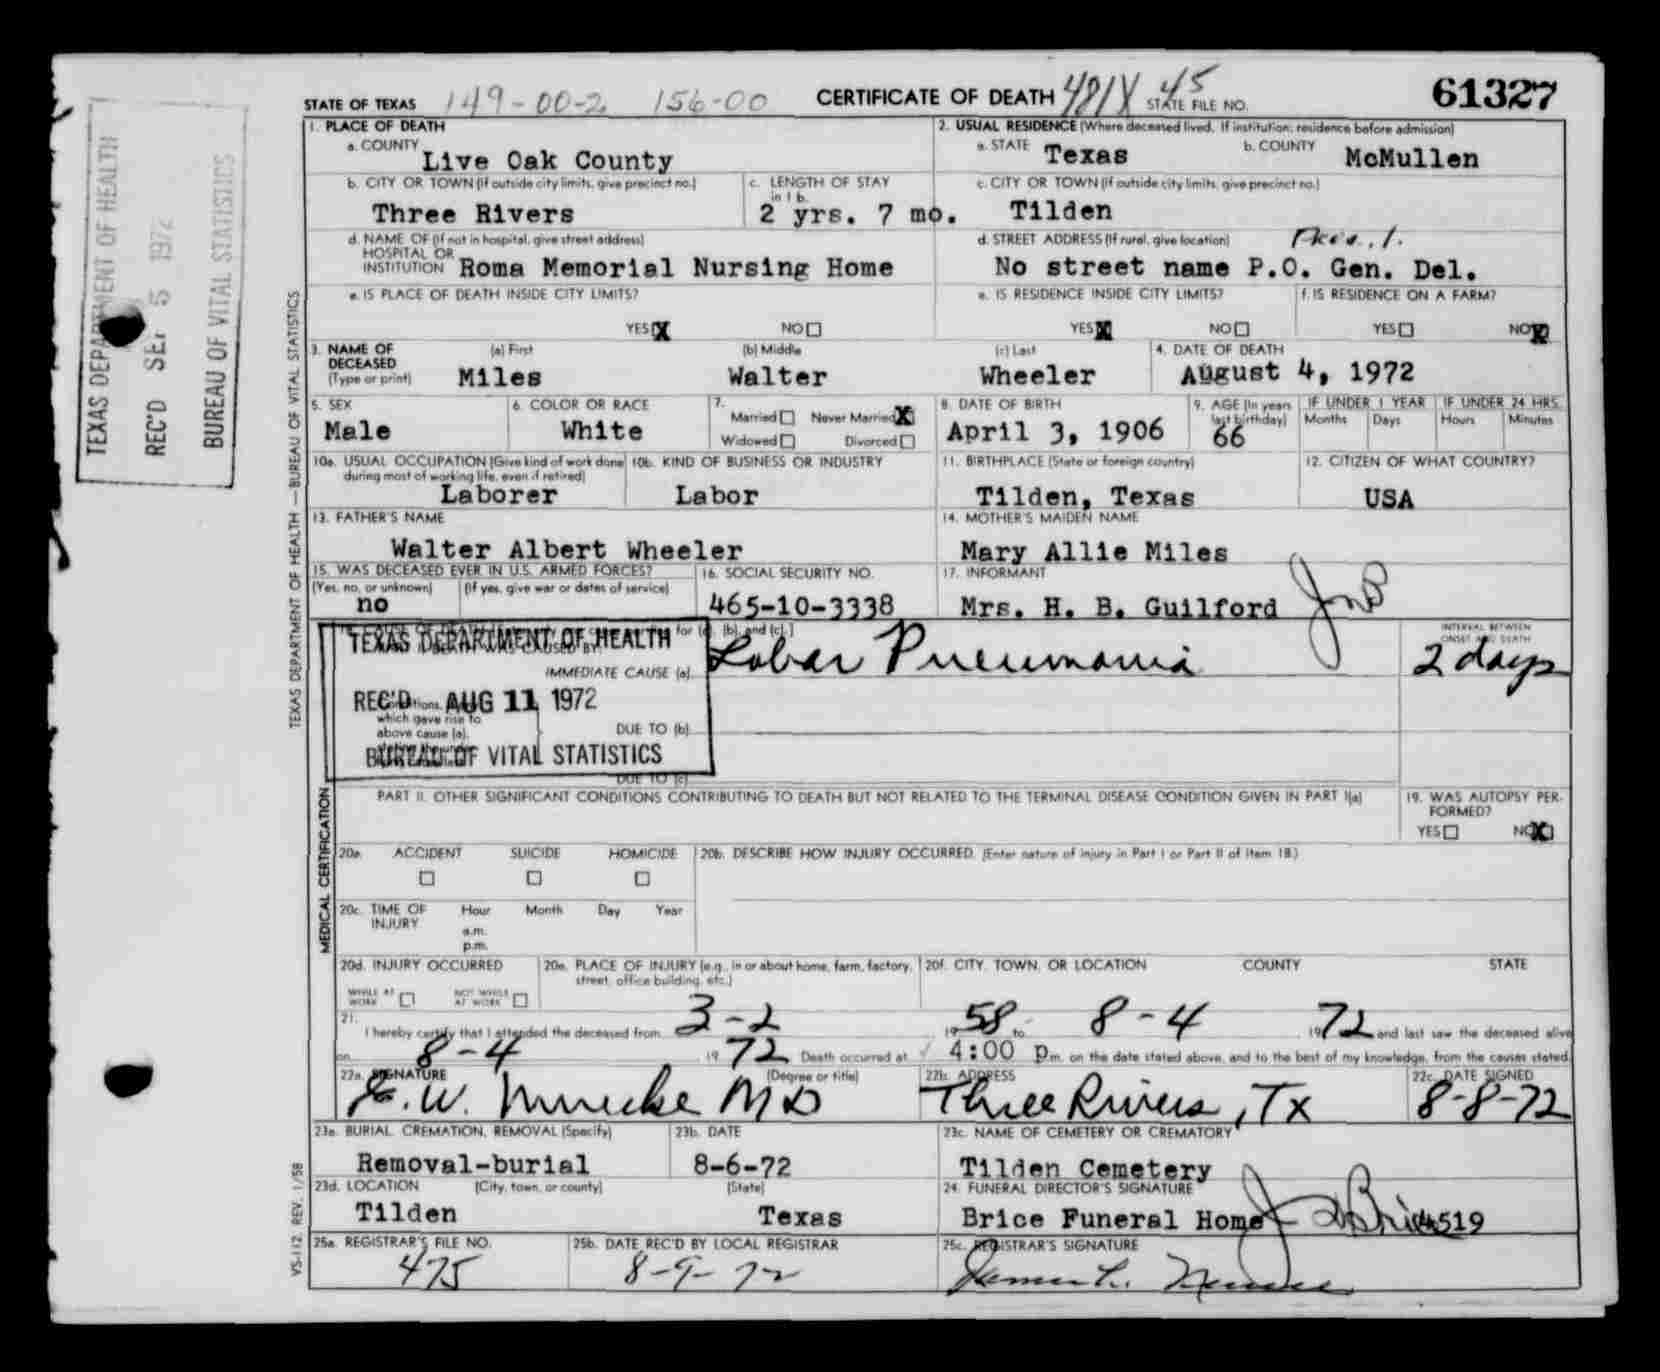 STATE OF TEXAS 149-00-2 156-00 CERTIFICATE OF DEATH 481X 45 STATE FILE NO. 61327
TEXAS DEPARTMENT OF HEALTH
REC'D SEP 5 1972
BUREAU OF VITAL STATISTICS
TEXAS DEPARTMENT OF HEALTH — BUREAU OF VITAL STATISTICS
1. PLACE OF DEATH
a. COUNTY Live Oak County
2. USUAL RESIDENCE (Where deceased lived. If institution: residence before admission)
a. STATE Texas b. COUNTY McMullen
b. CITY OR TOWN (If outside city limits, give precinct no.) Three Rivers
c. LENGTH OF STAY in 1 b. 2 yrs. 7 mo.
c. CITY OR TOWN (If outside city limits, give precinct no.) Tilden
d. NAME OF (If not in hospital, give street address)
HOSPITAL OR
INSTITUTION Roma Memorial Nursing Home
d. STREET ADDRESS (If rural, give location)
No street name P.O. Gen. Del.
e. IS PLACE OF DEATH INSIDE CITY LIMITS?
YES X NO
e. IS RESIDENCE INSIDE CITY LIMITS?
YES X NO
f. IS RESIDENCE ON A FARM?
YES NO X
3. NAME OF DECEASED (Type or print)
(a) First Miles (b) Middle Walter (c) Last Wheeler
4. DATE OF DEATH August 4, 1972
5. SEX Male
6. COLOR OR RACE White
7. Married Never Married X
Widowed Divorced
8. DATE OF BIRTH April 3, 1906
9. AGE (In years last birthday) 66
IF UNDER 1 YEAR Months Days
IF UNDER 24 HRS. Hours Minutes
10a. USUAL OCCUPATION (Give kind of work done during most of working life, even if retired) Laborer
10b. KIND OF BUSINESS OR INDUSTRY Labor
11. BIRTHPLACE (State or foreign country) Tilden, Texas
12. CITIZEN OF WHAT COUNTRY? USA
13. FATHER'S NAME Walter Albert Wheeler
14. MOTHER'S MAIDEN NAME Mary Allie Miles
15. WAS DECEASED EVER IN U.S. ARMED FORCES?
(Yes, no, or unknown) no (If yes, give war or dates of service)
16. SOCIAL SECURITY NO. 465-10-3338
17. INFORMANT Mrs. H. B. Guilford
TEXAS DEPARTMENT OF HEALTH
REC'D AUG 11 1972
BUREAU OF VITAL STATISTICS
for (a), (b), and (c).]
IMMEDIATE CAUSE (a) Lobar Pneumonia
INTERVAL BETWEEN ONSET AND DEATH 2 days
which gave rise to
above cause (a),
DUE TO (b)
DUE TO (c)
MEDICAL CERTIFICATION
PART II. OTHER SIGNIFICANT CONDITIONS CONTRIBUTING TO DEATH BUT NOT RELATED TO THE TERMINAL DISEASE CONDITION GIVEN IN PART I(a)
19. WAS AUTOPSY PERFORMED?
YES NO X
20a. ACCIDENT SUICIDE HOMICIDE
20b. DESCRIBE HOW INJURY OCCURRED. (Enter nature of injury in Part I or Part II of item 18.)
20c. TIME OF INJURY Hour Month Day Year
a.m.
p.m.
20d. INJURY OCCURRED
WHILE AT WORK NOT WHILE AT WORK
20e. PLACE OF INJURY (e.g., in or about home, farm, factory, street, office building, etc.)
20f. CITY, TOWN, OR LOCATION COUNTY STATE
21. I hereby certify that I attended the deceased from 3-2 1958 to 8-4 1972 and last saw the deceased alive
on 8-4 1972 Death occurred at 4:00 p.m. on the date stated above, and to the best of my knowledge, from the causes stated.
22a. SIGNATURE (Degree or title) MD
22b. ADDRESS Three Rivers, Tx
22c. DATE SIGNED 8-8-72
23a. BURIAL, CREMATION, REMOVAL (Specify) Removal-burial
23b. DATE 8-6-72
23c. NAME OF CEMETERY OR CREMATORY Tilden Cemetery
23d. LOCATION (City, town, or county) (State)
Tilden Texas
24. FUNERAL DIRECTOR'S SIGNATURE
Brice Funeral Home 4519
25a. REGISTRAR'S FILE NO. 475
25b. DATE REC'D BY LOCAL REGISTRAR 8-9-72
25c. REGISTRAR'S SIGNATURE
VS-112, REV. 1/58